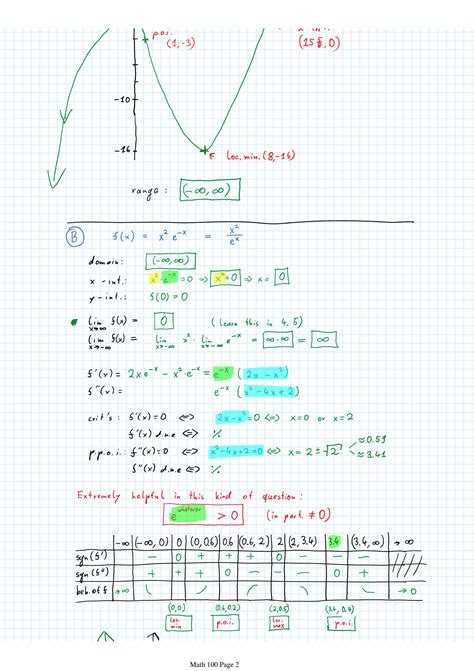 p.o.i.
(1,-3)
(15⅗,0)
-10
-16
loc. min. (8,-16)
range : (-∞,∞)
B f(x) = x² e^-x = x²/e^x
domain: (-∞,∞)
x-int.: x²·e^-x = 0 ⇒ x² = 0 ⇒ x = 0
y-int.: f(0) = 0
lim x→∞ f(x) = 0 (learn this in 4.5)
lim x→-∞ f(x) = lim x→-∞ x² · lim x→-∞ e^-x = ∞·∞ = ∞
f'(x) = 2xe^-x - x²·e^-x = e^-x (2x - x²)
f"(x) = e^-x (x² - 4x + 2)
crit's : f'(x) = 0 ⇔ 2x - x² = 0 ⇔ x = 0 or x = 2
f'(x) d.n.e ⇔ %
p.p.o.i.: f"(x) = 0 ⇔ x² - 4x + 2 = 0 ⇔ x = 2 ± √2 ≈ 0.59 ≈ 3.41
f"(x) d.n.e ⇔ %
Extremely helpful in this kind of question :
e^whatever > 0 (in part. ≠ 0)
-∞ (-∞, 0) 0 (0, 0.6) 0.6 (0.6, 2) 2 (2, 3.4) 3.4 (3.4, ∞) → ∞
sgn(f') - 0 + + + 0 - - -
sgn(f") + + + 0 - - - 0 +
beh. of f → ∞ → 0
(0,0) (0.6,0.2) (2,0.5) (3.4, 0.4)
loc. min p.o.i. loc. max p.o.i.
Math 100 Page 2